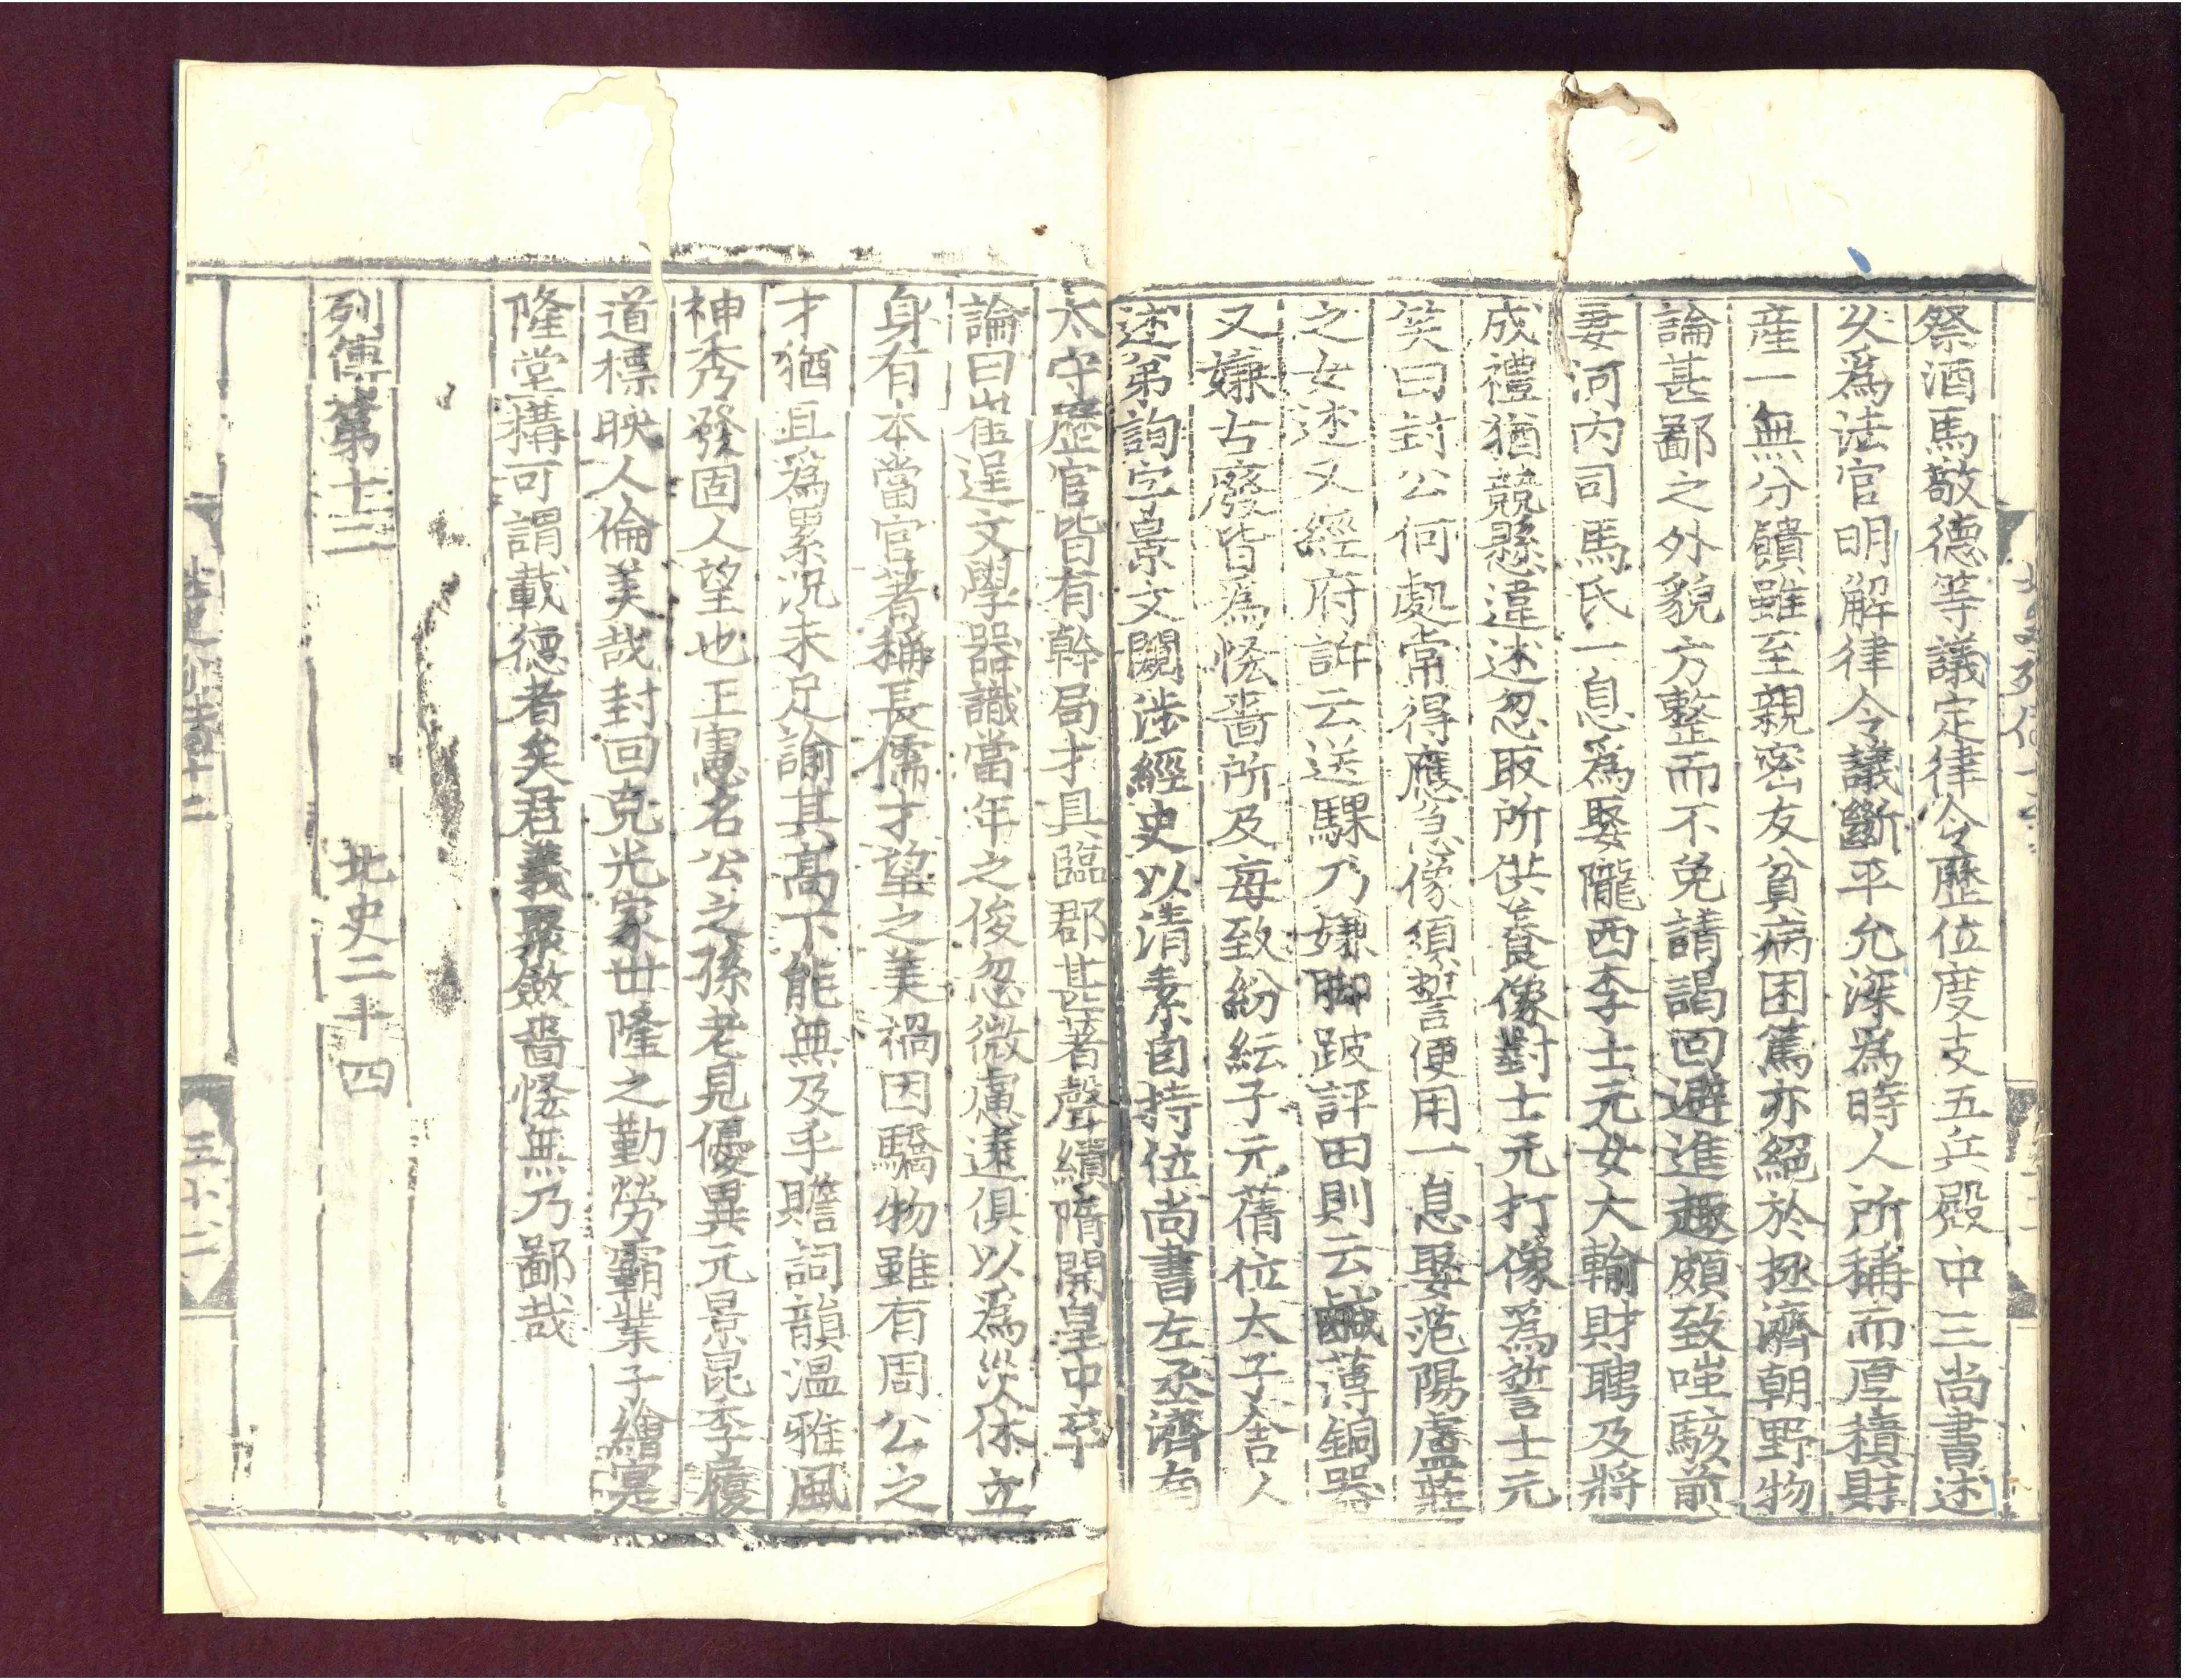 祭酒馬敬德等議定律令歷位度支五兵殿中三尚書述
乆爲法官明解律令議斷平允深爲時人所稱而厚積財
産一無分饋雖至親密友貧病困篤亦絕於拯濟朝野物
論甚鄙之外貌方整而不免請謁回避進趣頗致嗤駭前
妻河内司馬氏一息爲娶隴西李士元女大輸財聘及將
成禮猶競懸違述忽取所供養像對士元打像爲誓士元
笑曰封公何處常得應急像須誓便用一息娶范陽盧莊
之女述又經府訴云送騾乃嫌脚跛評田則云鹹薄銅器
又嫌古廢皆爲悋嗇所及每致紛紜子元蒨位太子舍人
述弟詢字景文闚涉經史以清素自持位尚書左丞濟有
太守歷官皆有幹局才具臨郡甚著聲績隋開皇中卒
論曰崔逞文學器識當年之俊忽微慮遠俱以爲災休立
身有本當官著稱長儒才望之美禍因驕物雖有周公之
才猶且爲累况未足諭其高下能無及乎贍詞韻溫雅風
神秀發固人望也正憲名公之孫老見優異元景昆季履
道標映人倫美哉封回克光家世隆之勤勞霸業子繪寔
隆堂構可謂載德者矣君義聚斂嗇悋無乃鄙哉
列傳第十二
北史二十四